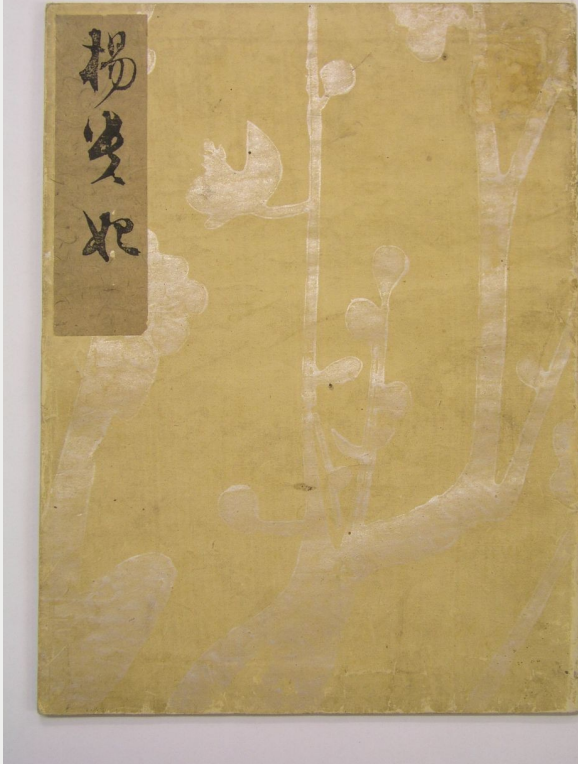 楊貴妃